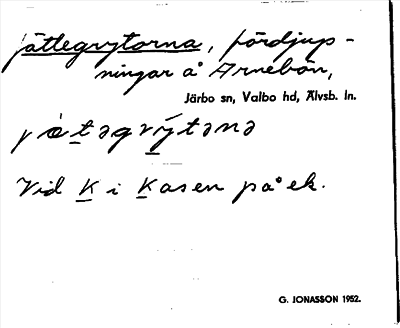 jättegrytorna, fördjup-
ningar å Arnebon,
Järbo sn, Valbo hd, Älvsb. ln.
jätəgrýtənə
Vid K i Kasen på ek.
G. JONASSON 1952.